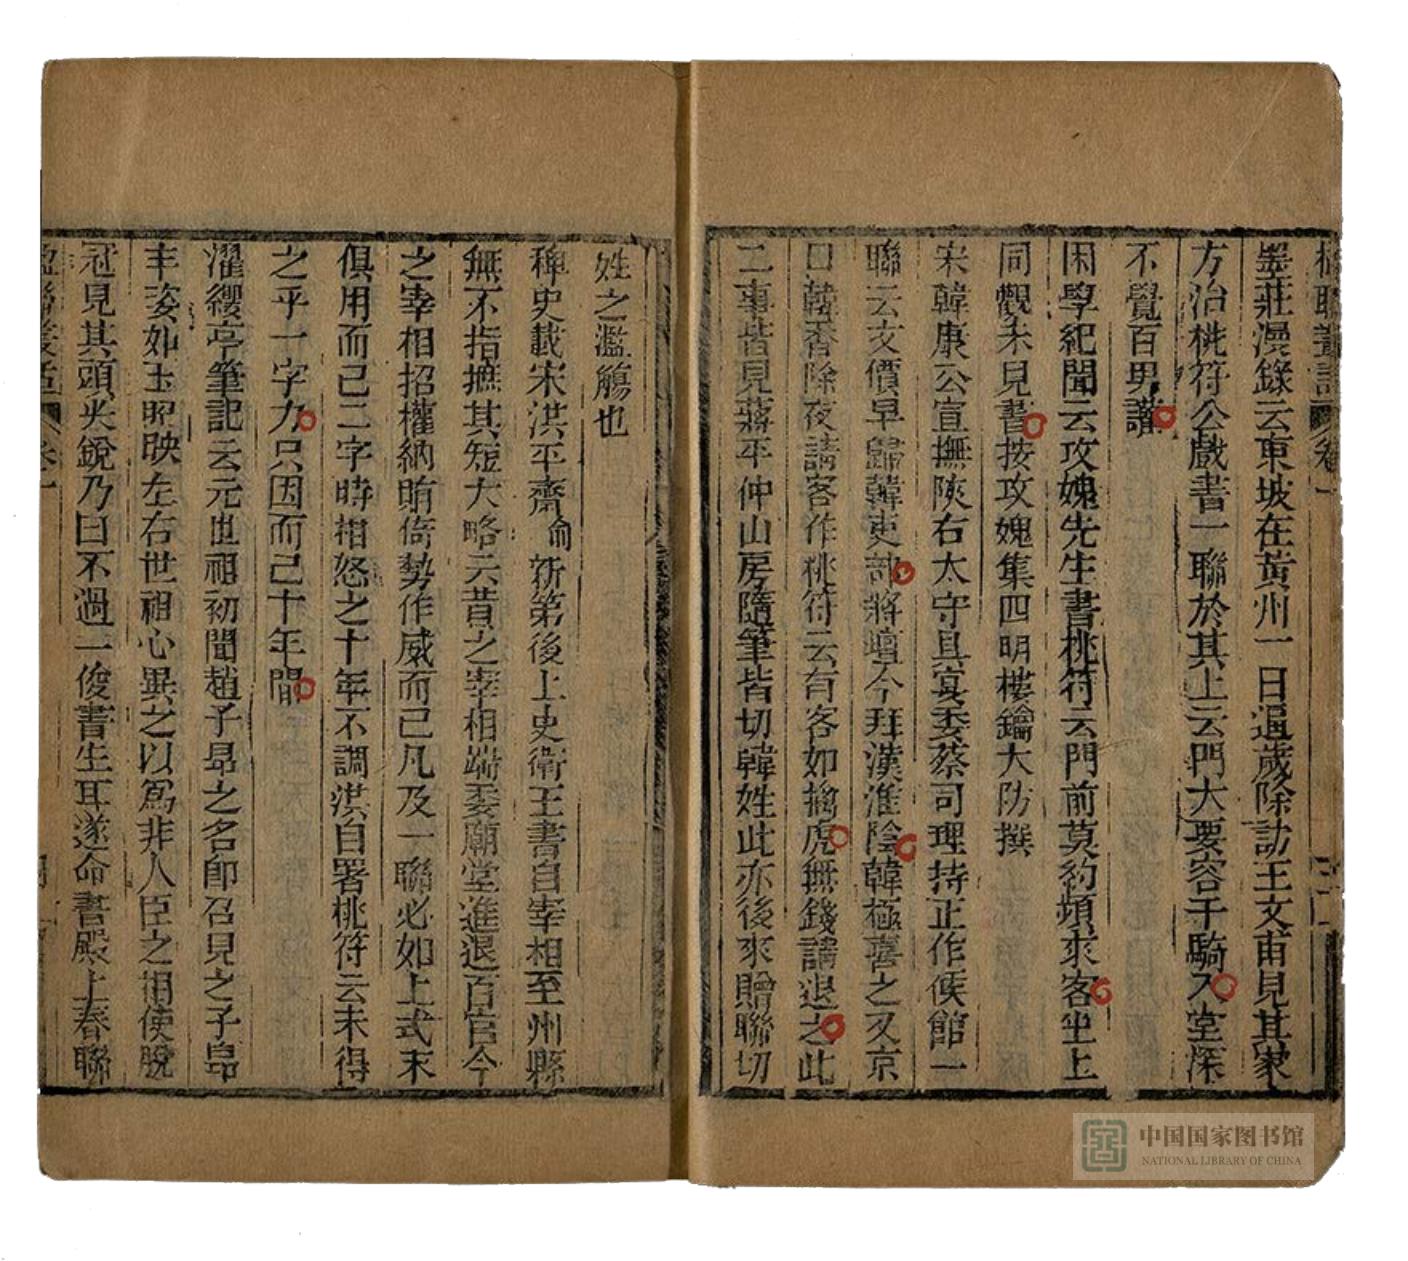 楹聯叢話 卷一
墨莊漫錄云東坡在黃州一日逼歲除訪王文甫見其家
方治桃符公戲書一聯於其上云門大要容千騎入堂深
不覺百男讙
困學紀聞云攻媿先生書桃符云門前莫約頻來客坐上
同觀未見書按攻媿集四明樓鑰大防撰
宋韓康公宣撫陝右太守具宴委蔡司理持正作候館一
聯云文價早歸韓吏部將壇今拜漢淮陰韓極喜之又京
口韓香除夜請客作桃符云有客如擒虎無錢請退之此
二事皆見蔣平仲山房隨筆皆切韓姓此亦後來贈聯切
姓之濫觴也
稗史載宋洪平齋俞新第後上史衛王書自宰相至州縣
無不指摭其短大略云昔之宰相端委廟堂進退百官今
之宰相招權納賄倚勢作威而已凡及一聯必如上式末
俱用而已二字時相怒之十年不調洪自署桃符云未得
之乎一字力只因而已十年間
濯纓亭筆記云元世祖初聞趙子昂之名卽召見之子昂
丰姿如玉照映左右世祖心異之以爲非人臣之相使脫
冠見其頭尖銳乃曰不過一俊書生耳遂命書殿上春聯
楹聯叢話 卷一
中国国家图书馆
NATIONAL LIBRARY OF CHINA